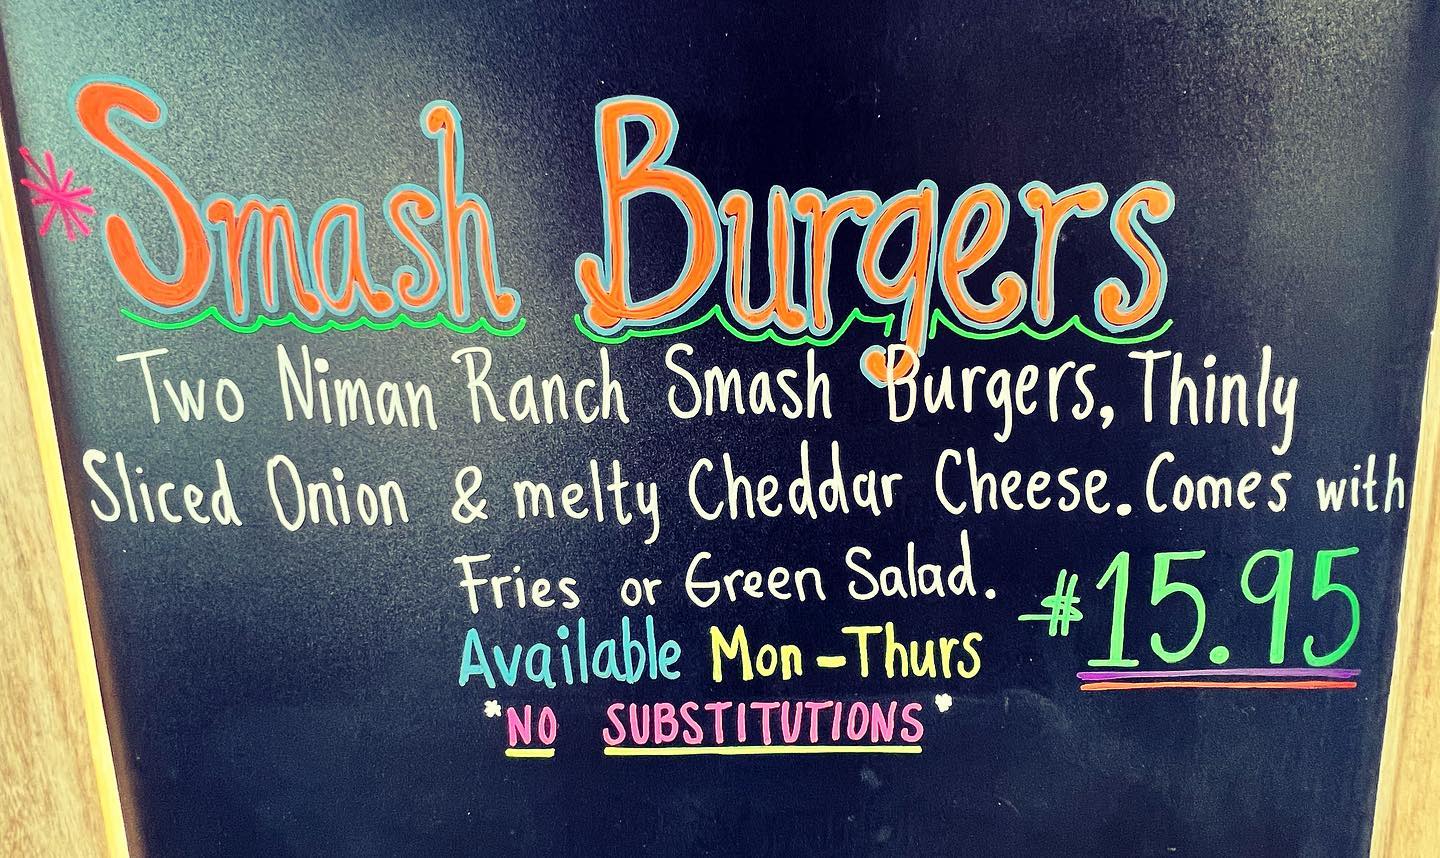 *Smash Burgers
Two Niman Ranch Smash Burgers, Thinly
Sliced Onion & melty Cheddar Cheese. Comes with
Fries or Green Salad.
$15.95
Available Mon-Thurs
*NO SUBSTITUTIONS*